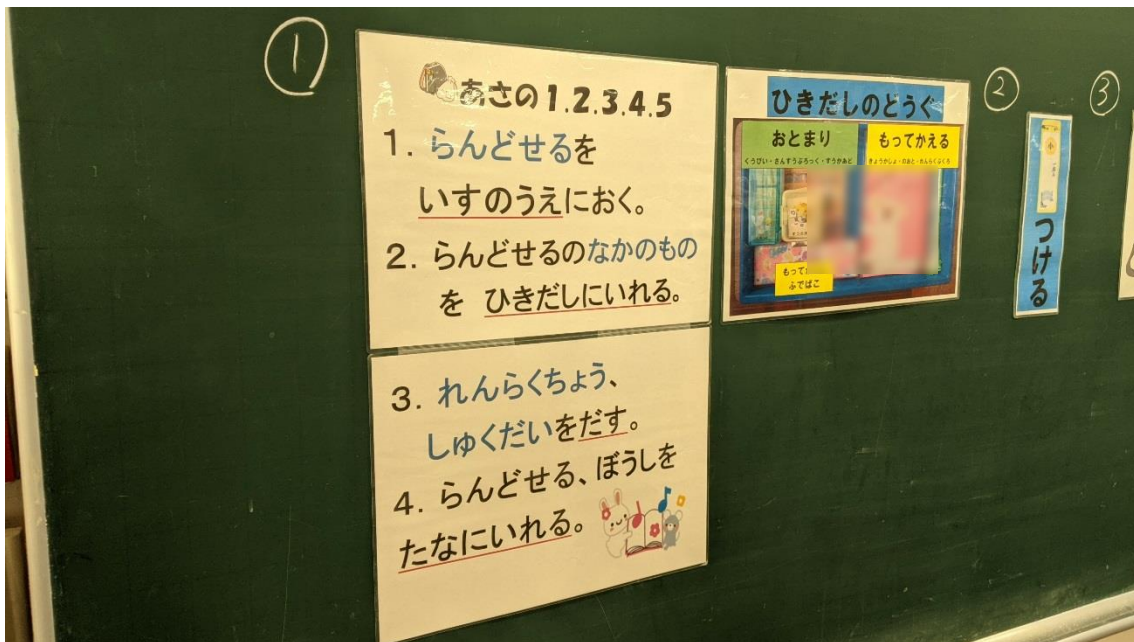 ①
あさの1.2.3.4.5
1. らんどせるを
いすのうえにおく。
2. らんどせるのなかのもの
を ひきだしにいれる。
3. れんらくちょう、
しゅくだいをだす。
4. らんどせる、ぼうしを
たなにいれる。
ひきだしのとうぐ
おとまり
くうぴい・さんすうぶろっく・すうかあど
もってかえる
きょうかしょ・のおと・れんらくぶくろ
もって
ふでばこ
②
つける
③